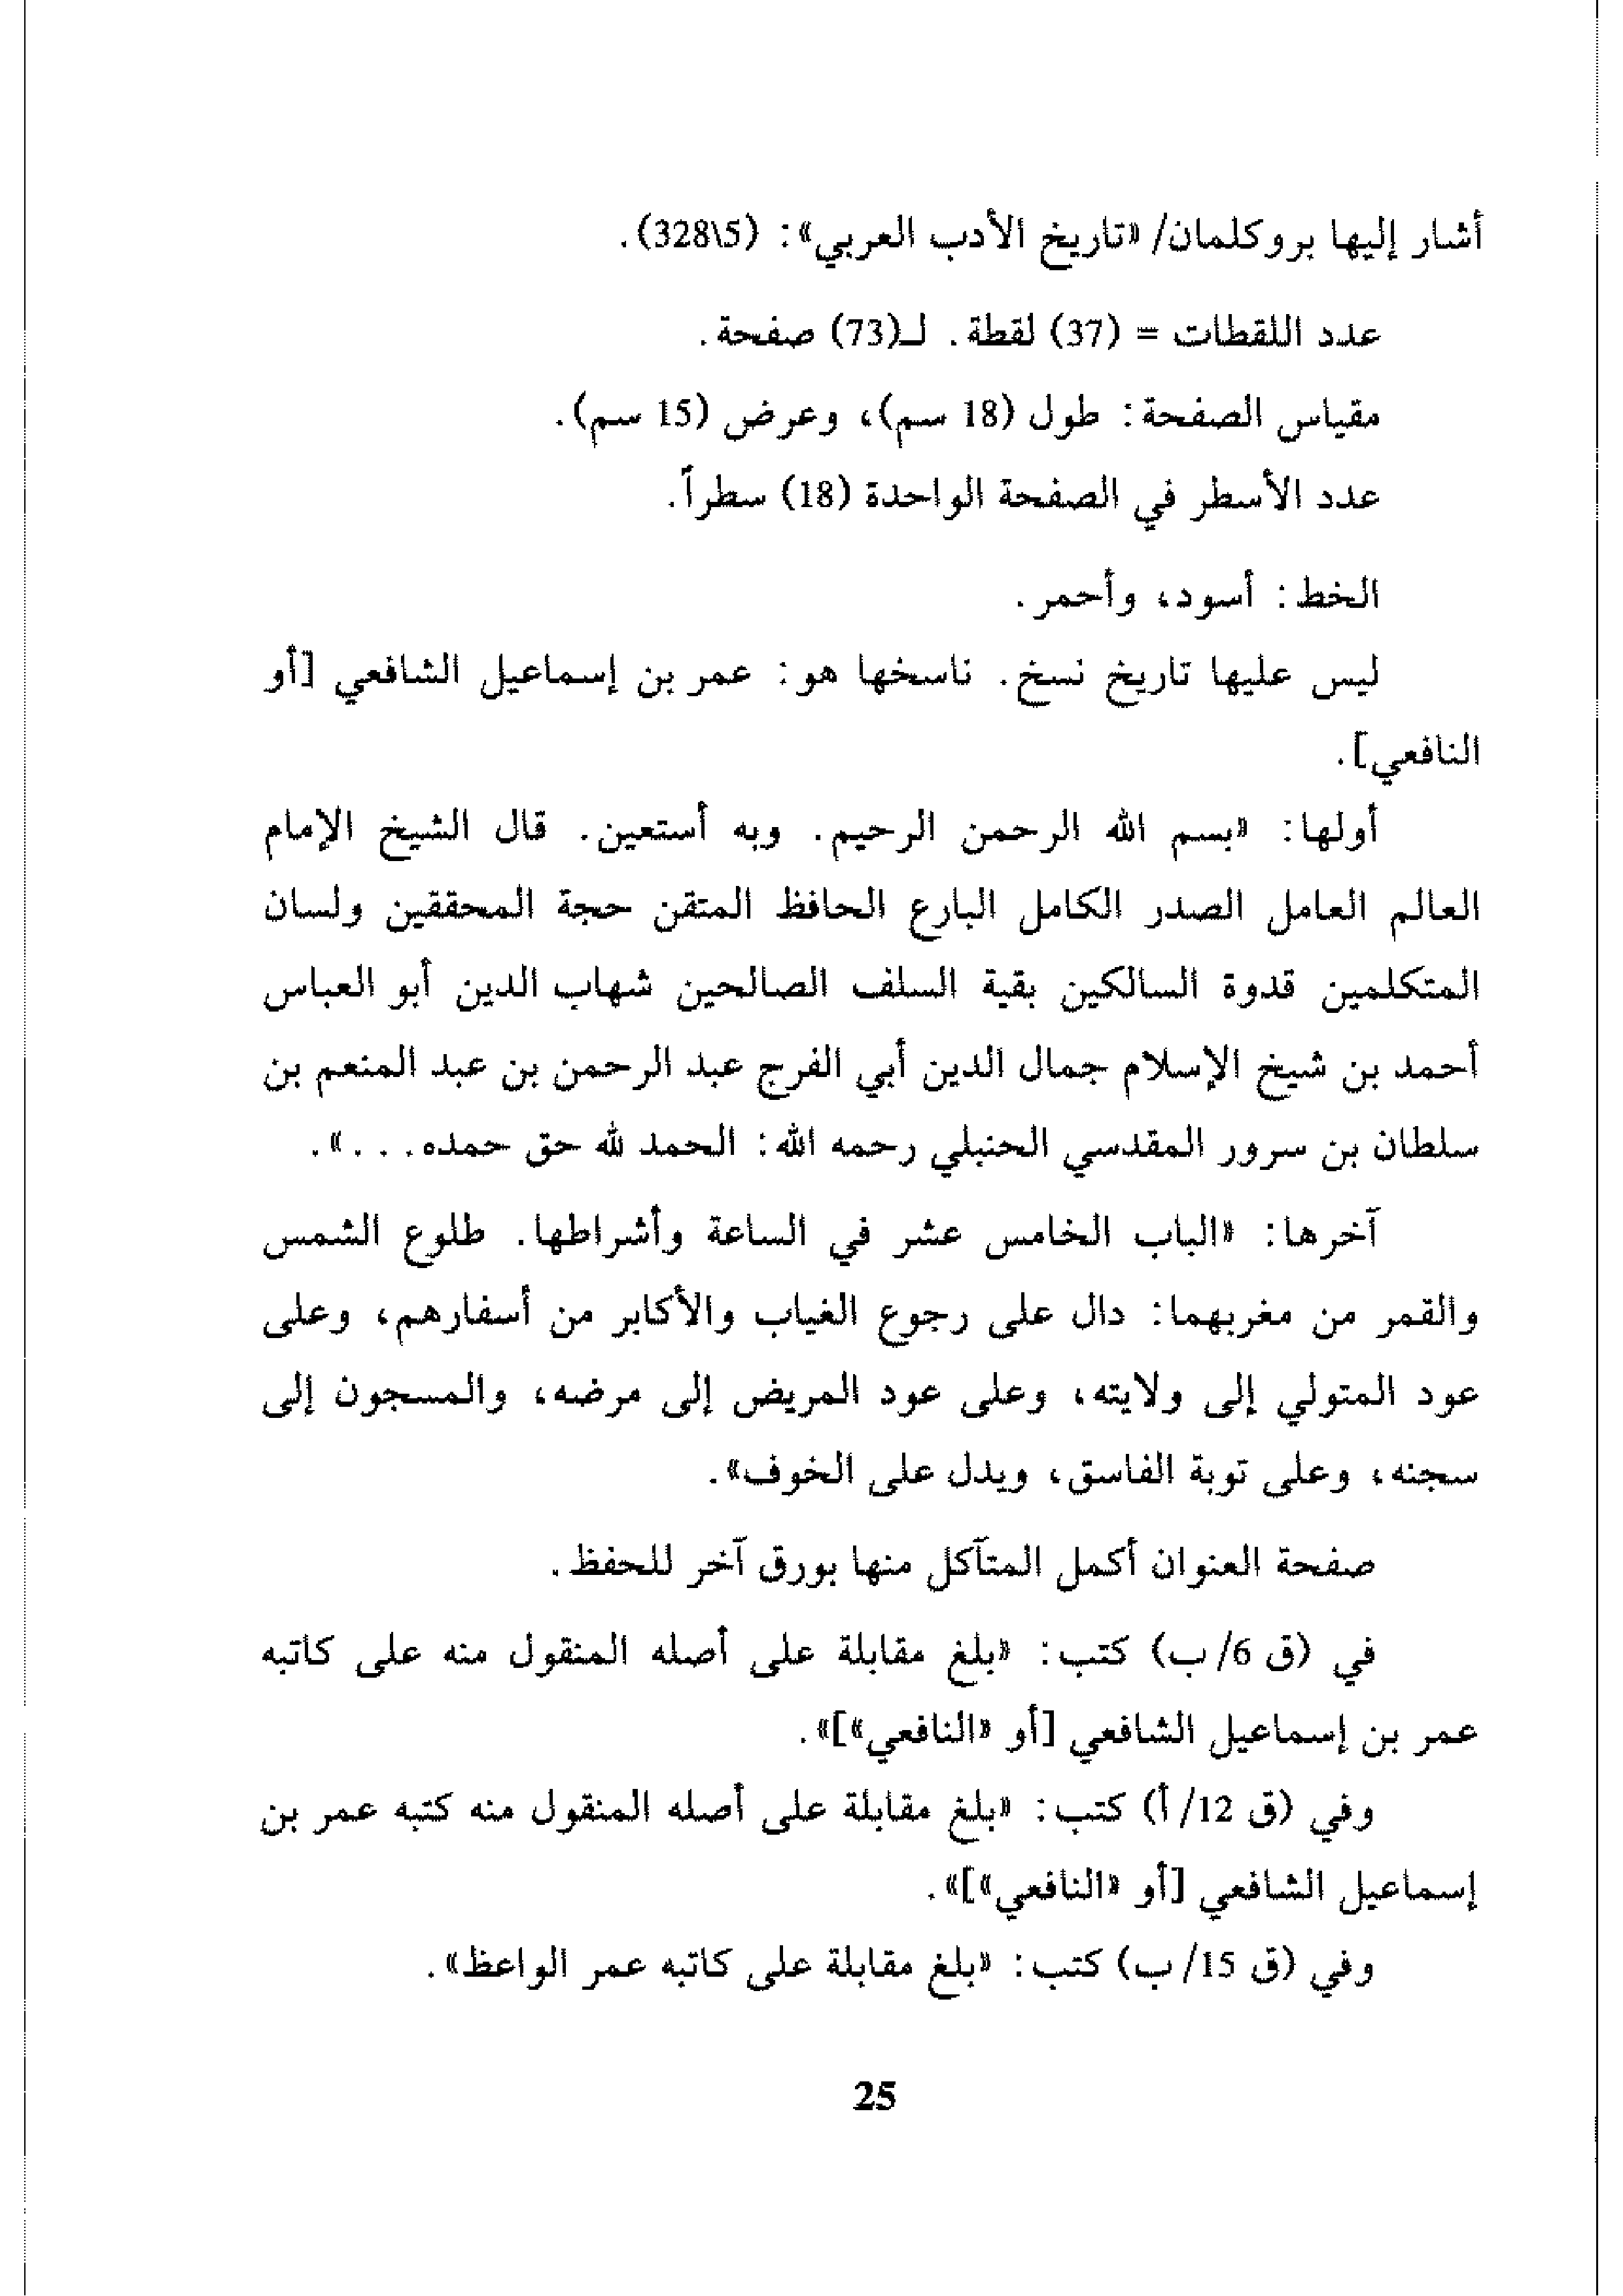 أشار إليها بروكلمان/ «تاريخ الأدب العربي»: (5\328).
عدد اللقطات = (37) لقطة. لـ(73) صفحة.
مقياس الصفحة: طول (18 سم)، وعرض (15 سم).
عدد الأسطر في الصفحة الواحدة (18) سطراً.
الخط: أسود، وأحمر.
ليس عليها تاريخ نسخ. ناسخها هو: عمر بن إسماعيل الشافعي [أو
النافعي].
أولها: «بسم الله الرحمن الرحيم. وبه أستعين. قال الشيخ الإمام
العالم العامل الصدر الكامل البارع الحافظ المتقن حجة المحققين ولسان
المتكلمين قدوة السالكين بقية السلف الصالحين شهاب الدين أبو العباس
أحمد بن شيخ الإسلام جمال الدين أبي الفرج عبد الرحمن بن عبد المنعم بن
سلطان بن سرور المقدسي الحنبلي رحمه الله: الحمد لله حق حمده. . .».
آخرها: «الباب الخامس عشر في الساعة وأشراطها. طلوع الشمس
والقمر من مغربهما: دال على رجوع الغياب والأكابر من أسفارهم، وعلى
عود المتولي إلى ولايته، وعلى عود المريض إلى مرضه، والمسجون إلى
سجنه، وعلى توبة الفاسق، ويدل على الخوف».
صفحة العنوان أكمل المتآكل منها بورق آخر للحفظ.
في (ق 6/ ب) كتب: «بلغ مقابلة على أصله المنقول منه على كاتبه
عمر بن إسماعيل الشافعي [أو «النافعي»]».
وفي (ق 12/ أ) كتب: «بلغ مقابلة على أصله المنقول منه كتبه عمر بن
إسماعيل الشافعي [أو «النافعي»]».
وفي (ق 15/ ب) كتب: «بلغ مقابلة على كاتبه عمر الواعظ».
25